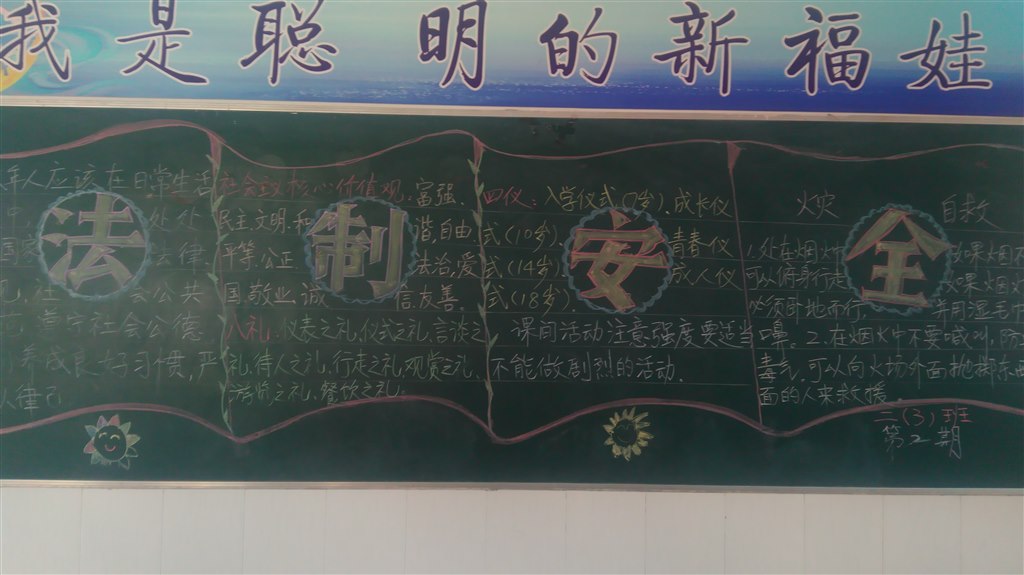 我是聪明的新福娃
法制安全
年人应该在日常生活
处处
国家 法律
会公共
遵守社会公德
养成良好习惯,严
人律己
社会主义核心价值观:富强、
民主、文明、和
谐,自由、
平等、公正、
法治,爱
国、敬业、诚
信、友善。
八礼:仪表之礼,仪式之礼,言谈之
礼,待人之礼,行走之礼,观赏之礼、
游览之礼、餐饮之礼。
四仪:入学仪式(7岁)、成长仪
式(10岁)、青春仪
式(14岁)、成人仪
式(18岁)。
课间活动注意强度要适当
不能做剧烈的活动。
火灾 自救
1、处在烟火中 如果烟不
可以俯身行走 如果烟
必须卧地而行, 并用湿毛巾
嘴。2、在烟火中不要喊叫,防
毒气,可以向火场外面抛掷东西
面的人来救援
二(3)班
第2期